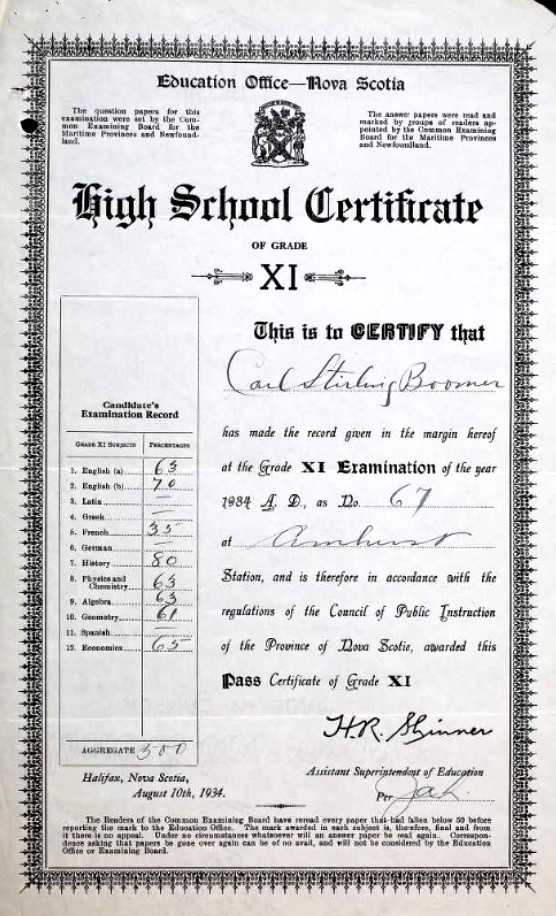 Education Office—Nova Scotia
The question papers for this
examination were set by the Com-
mon Examining Board for the
Maritime Provinces and Newfound-
land.
The answer papers were read and
marked by groups of readers ap-
pointed by the Common Examining
Board for the Maritime Provinces
and Newfoundland.
High School Certificate
OF GRADE
XI
This is to CERTIFY that
Carl Stirling Boomer
has made the record given in the margin hereof
at the Grade XI Examination of the year
1934 A. D., as No. 67
at Amherst
Station, and is therefore in accordance with the
regulations of the Council of Public Instruction
of the Province of Nova Scotia, awarded this
Pass Certificate of Grade XI
Candidate's
Examination Record
GRADE XI SUBJECTS PERCENTAGES
1. English (a) 63
2. English (b) 70
3. Latin —
4. Greek —
5. French 35
6. German —
7. History 80
8. Physics and
Chemistry 63
9. Algebra 63
10. Geometry 61
11. Spanish
12. Economics 65
AGGREGATE 500
H.R. Shinner
Assistant Superintendent of Education
Per
Halifax, Nova Scotia,
August 10th, 1934.
The Readers of the Common Examining Board have reread every paper that had fallen below 50 before
reporting the mark to the Education Office. The mark awarded in each subject is, therefore, final and from
it there is no appeal. Under no circumstances whatsoever will an answer paper be read again. Correspon-
dence asking that papers be gone over again can be of no avail, and will not be considered by the Education
Office or Examining Board.